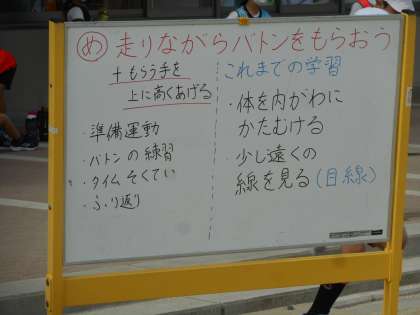 め 走りながらバトンをもらおう
+もらう手を
上に高くあげる
・準備運動
・バトンの練習
・タイムそくてい
・ふり返り
これまでの学習
・体を内がわに
かたむける
・少し遠くの
線を見る(目線)